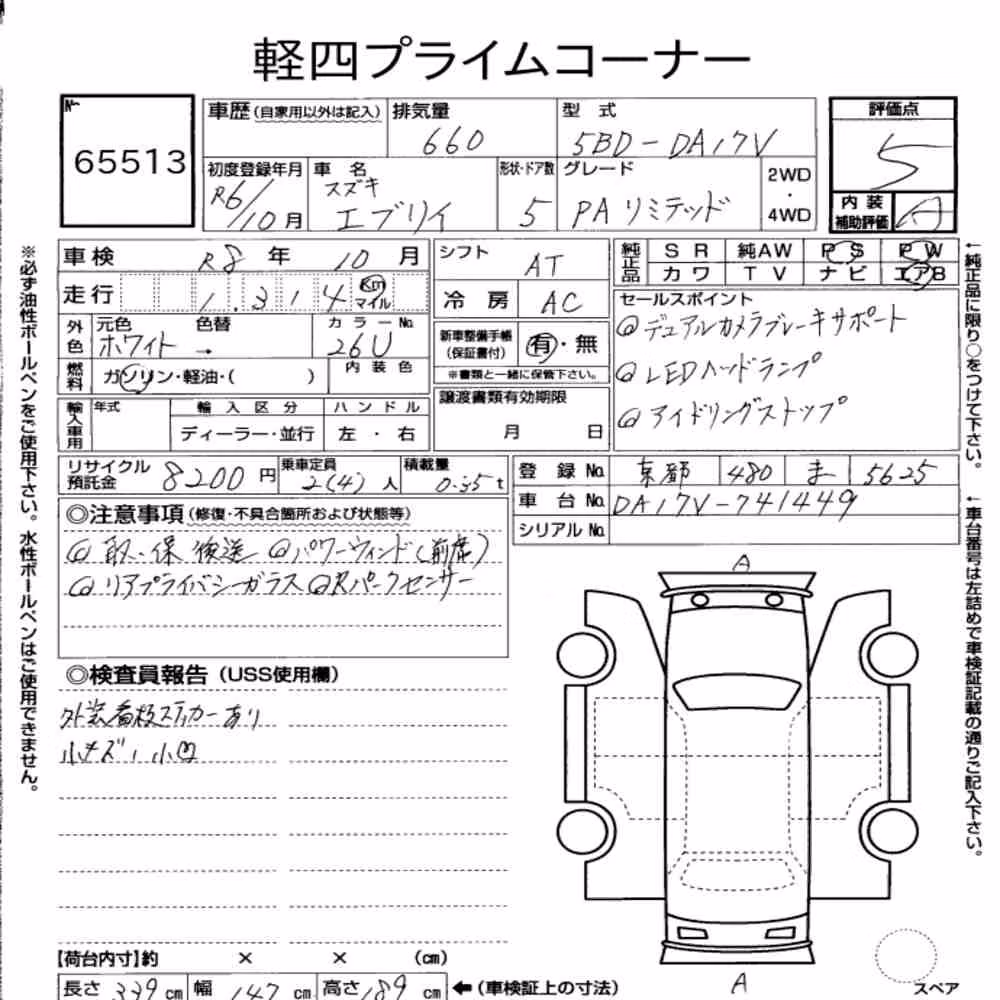 軽四プライムコーナー
No 65513
車歴(自家用以外は記入) 排気量 660 型式 5BD-DA17V 評価点 5
初度登録年月 R6/10月 車名 スズキ エブリイ 形状・ドア数 5 グレード PAリミテッド 2WD・4WD 内装補助評価 A
車検 R8年10月 シフト AT 純正品 SR 純AW PS PW
カワ TV ナビ エアB
走行 1,314 Km マイル 冷房 AC
セールスポイント
@デュアルカメラブレーキサポート
@LEDヘッドランプ
@アイドリングストップ
外色 元色 ホワイト 色替 → カラーNo. 26U 新車整備手帳(保証書付) 有・無
※書類と一緒に保管下さい。
燃料 ガソリン・軽油・( ) 内装色
譲渡書類有効期限 月 日
輸入車用 年式 輸入区分 ハンドル
ディーラー・並行 左・右
リサイクル預託金 8200円 乗車定員 2(4)人 積載量 0.35t
登録No. 京都 480 ま 5625
車台No. DA17V-741449
シリアルNo.
◎注意事項(修復・不具合箇所および状態等)
@取、保 後送 @パワーウィンド(前席)
@リアプライバシーガラス @Rパークセンサー
◎検査員報告(USS使用欄)
外装看板ステッカーあり
小キズ、小凹
A
A
スペア
【荷台内寸】約 × × (cm)
長さ 339cm 幅 147cm 高さ 189cm ←(車検証上の寸法)
※必ず油性ボールペンをご使用下さい。水性ボールペンはご使用できません。
←純正品に限り○をつけて下さい。
←車台番号は左詰めで車検証記載の通りご記入下さい。